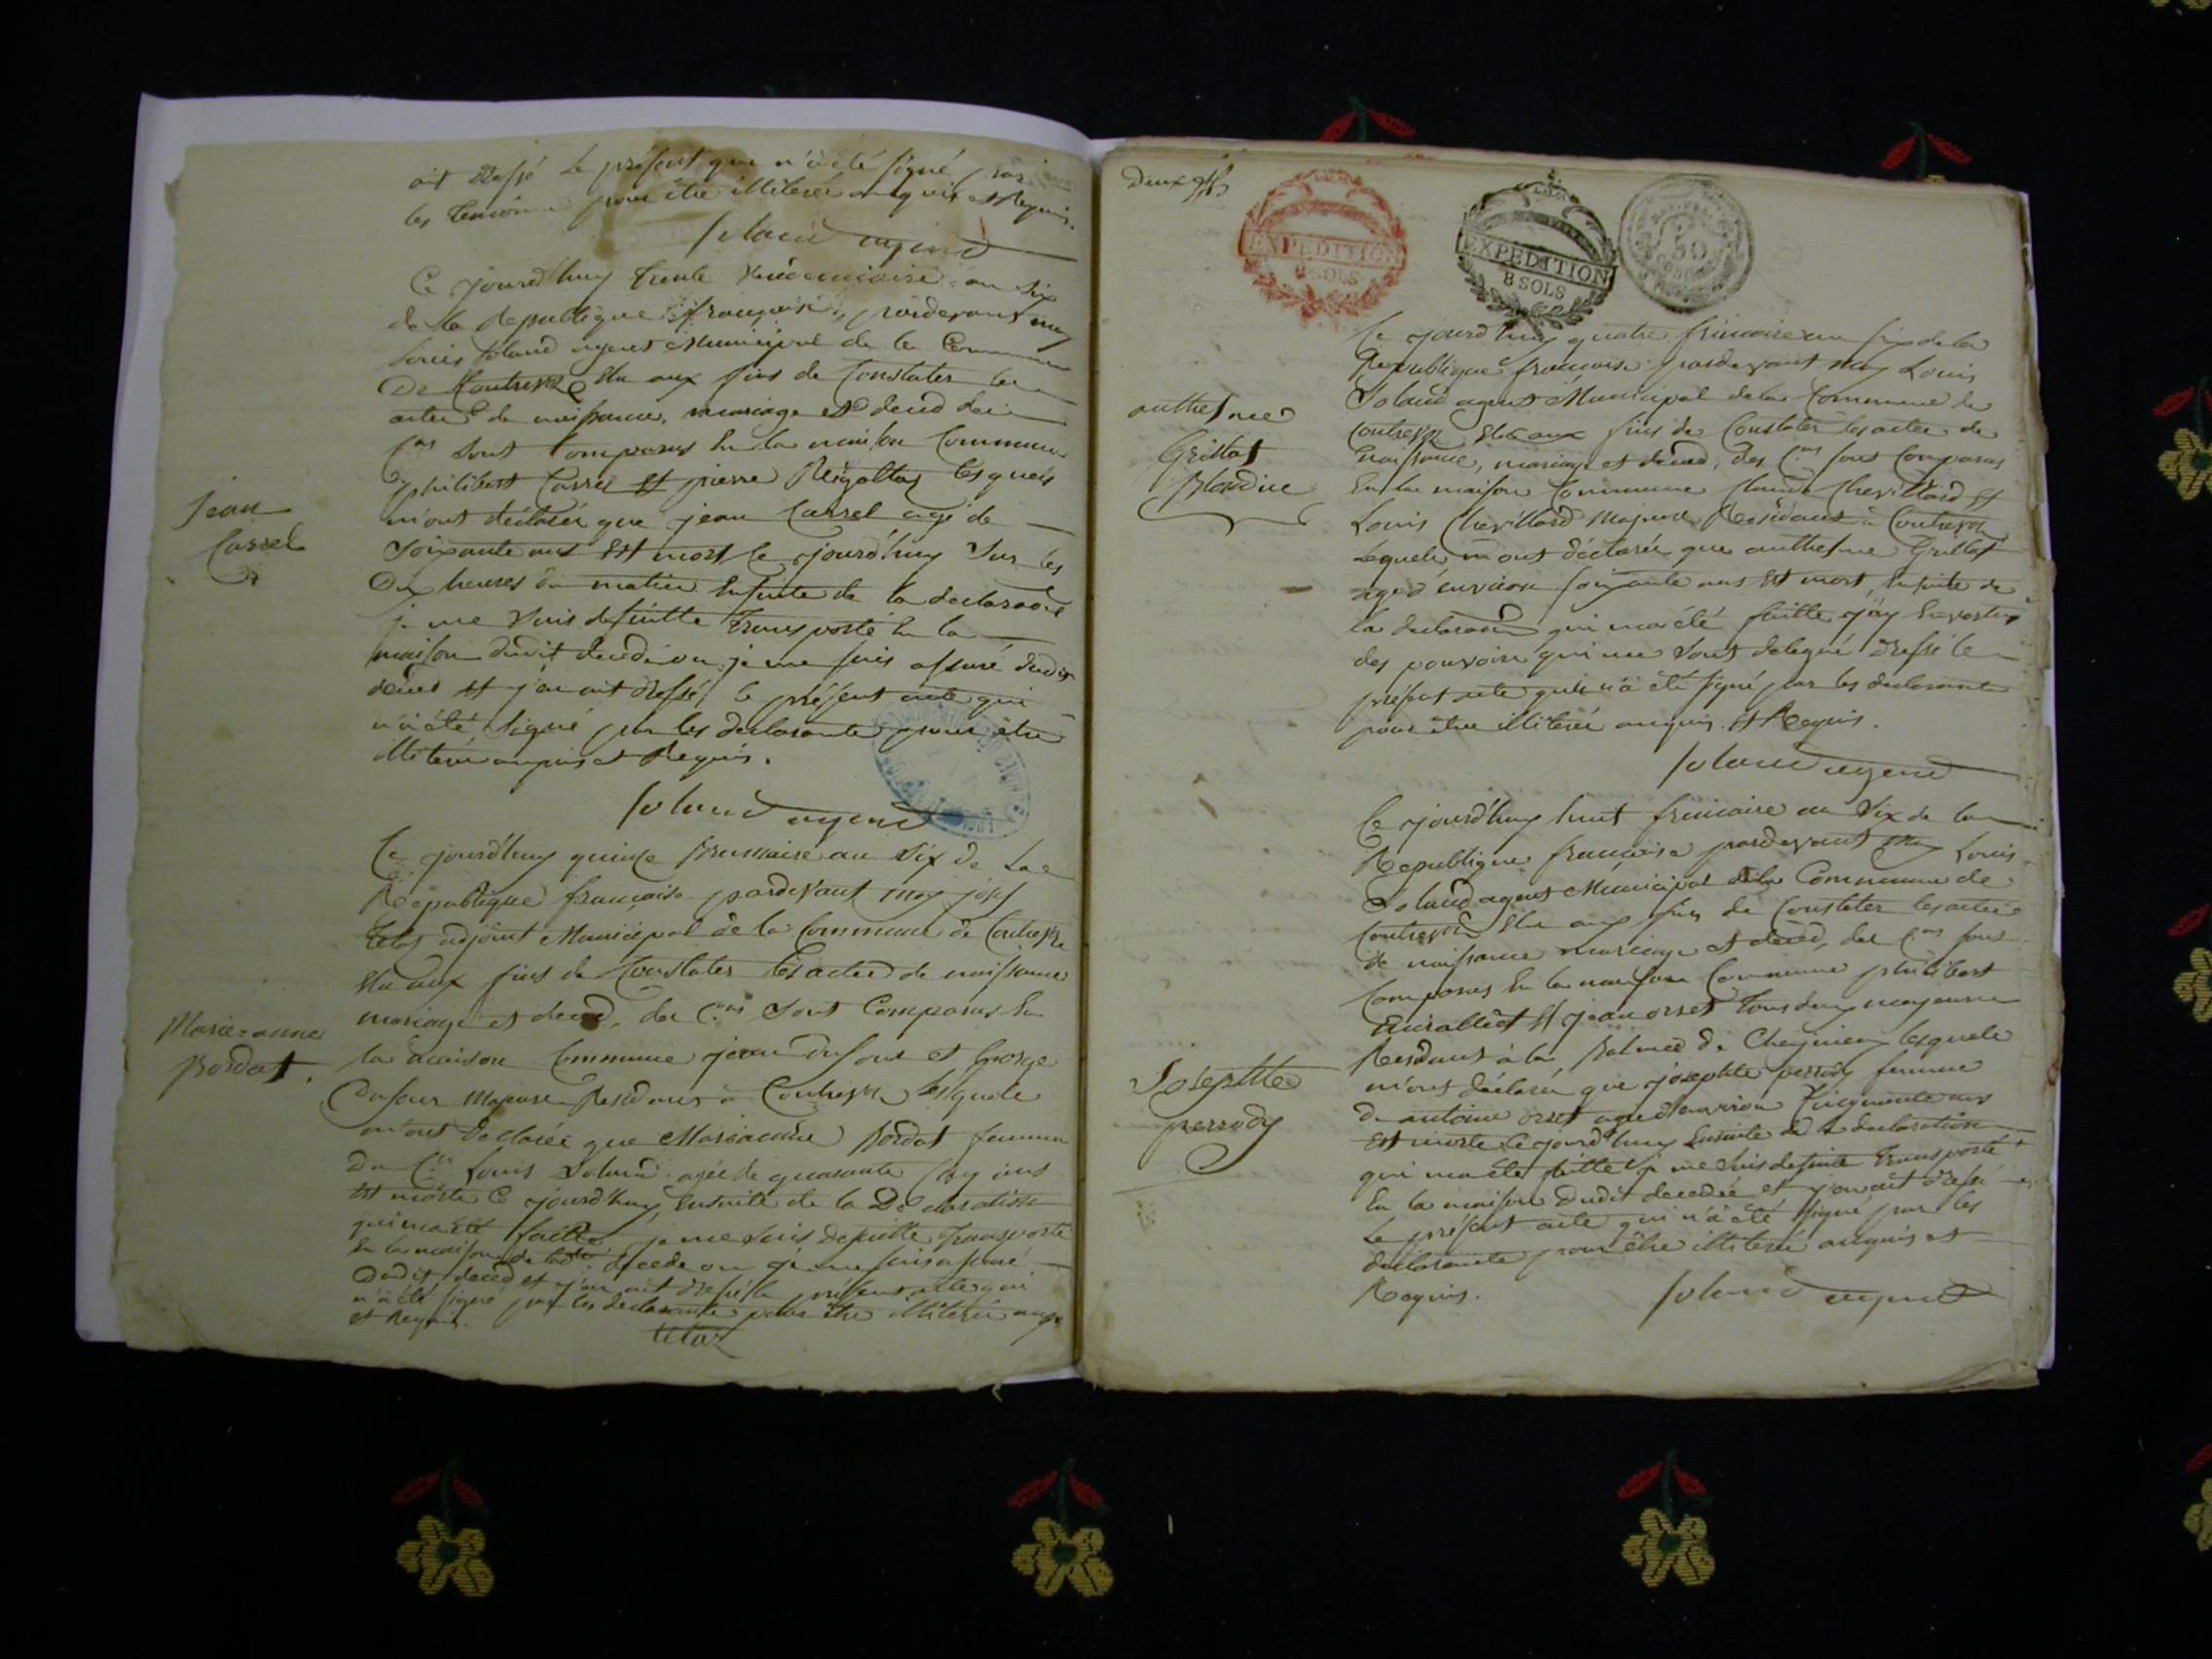 ait dressé le présent qui n'a été signé par
les temoins pour être illiteré enquis et Requis.
Soland agend
Ce jourd'huy trente vendemiaire an six
de la Republique française, pardevant moy
Louis Soland agent Municipal de la Commune
De Contrevoz Elu aux fins de Constater les
actes de naissance, mariage et decad des
C.ens sont Comparus En la maison Commune
philibert Carrel Et pierre Rigollet lesquels
m'ont déclaré que jean Carrel agé de
Soixante ans Est mort Ce jourd'huy Sur les
Dix heures du matin Ensuite de la declaraõn
je me Suis desuitte Transporté En la
maison dudit decedé ou je me suis assuré dudit
décad Et j'en ait dressé le présent acte qui
n'a été Signé par les declarants pour être
illiteré enquis et Requis.
Jean
Carrel
Soland agend
Ce jourd'huy quinze Brumaire an Six de La
République française pardevant moy josef
adjoint Municipal de la Commune de Contrevoz
Elu aux fins de Constater les actes de naissance
mariage et decad, des C.ens Sont Comparus En
la maison Commune jean Dufour et George
Dufour Majeurs Residants à Contrevoz lesquels
m'ont Declaré que Marianne Bordat femme
Du C.en Louis Soland agée de quarante ans
Est morte Ce jourd'huy Ensuite de la Declaration
qui m'a été faitte je me Suis desuitte Transporté
En la maison de decede ou je me suis assuré
Dudit decad et j'en ait dressé le présent acte qui
n'a été signé par les declarants pour être illiteré enquis
et Requis.
Marie=anne
Bordat.
Deux
EXPEDITION
8 SOLS
EXPEDITION
8 SOLS
50
Ce jourd'huy quatre frimaire an six de la
Republique française pardevant moy Louis
Soland agent Municipal de la Commune de
Contrevoz Elu aux fins de Constater les actes de
Naissance, mariage et décad, des C.ens sont Comparus
En la maison Commune Claude Chevillard Et
Louis Chevillard Majeurs Residants à Contrevoz
Lequels m'ont déclaré que anthelme Grillet
agé d'environ soixante ans Est mort, Ensuite de
la declaraõn qui m'a été faitte j'ay En vertu
des pouvoirs qui me Sont delegué dressé le
présent acte qui n'a été signé par les declarants
pour être illiteré enquis Et Requis.
anthelme
Grillet
Blondin
Soland agend
Ce jourd'huy huit frimaire an Six de la
Republique française pardevant moy Louis
Soland agent Municipal de la Commune de
Contrevoz Elu aux fins de Constater les actes
de naissance mariage et décad, des C.ens sont
Comparus En la maison Commune philibert
Et jean orset Tous deux majeurs
Residants à la Balme de Cheignieu lesquels
m'ont déclaré que josephte perrody femme
De antoine orset agée d'environ Cinquante ans
Est morte Ce jourd'huy Ensuite de la declaration
qui m'a été faitte je me Suis desuite Transporté
En la maison Dudit decedée et j'en ait dressé
Le présent acte qui n'a été signé par les
declarants pour être illiteré enquis et
Requis.
Josephte
perrody
Soland agend